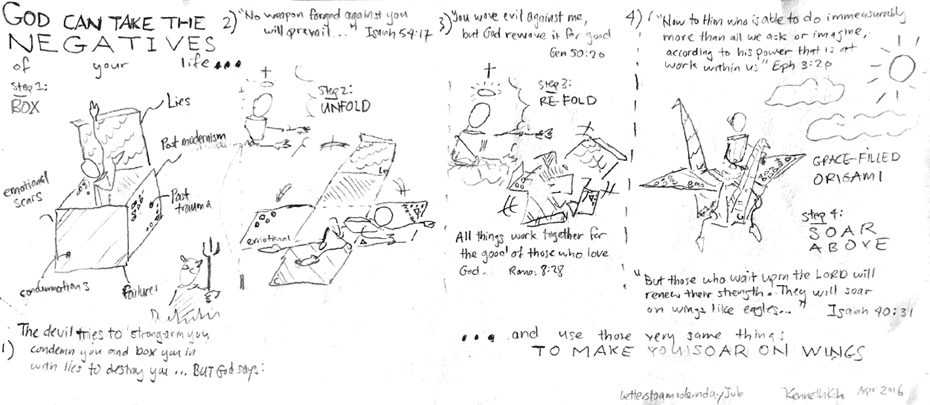 GOD CAN TAKE THE
NEGATIVES
of your life...
Step 1:
BOX
Lies
Post modernism
emotional
scars
Past
trauma
condemnations
Failures
The devil tries to strongarm you
1) condemn you and box you in
with lies to destroy you... BUT God says:
2) "No weapon forged against you
will prevail..." Isaiah 54:17
Step 2:
UNFOLD
emotional
3) You wove evil against me,
but God rewove it for good
Gen 50:20
Step 3:
RE-FOLD
All things work together for
the good of those who love
God. Roms. 8:28
4) "Now to Him who is able to do immeasurably
more than all we ask or imagine,
according to his power that is at
work within us" Eph 3:20
emo
GRACE-FILLED
ORIGAMI
step 4:
SOAR
ABOVE
"But those who wait upon the LORD will
renew their strength. They will soar
on wings like eagles..." Isaiah 40:31
... and use those very same things
TO MAKE YOU SOAR ON WINGS
Apr 2016